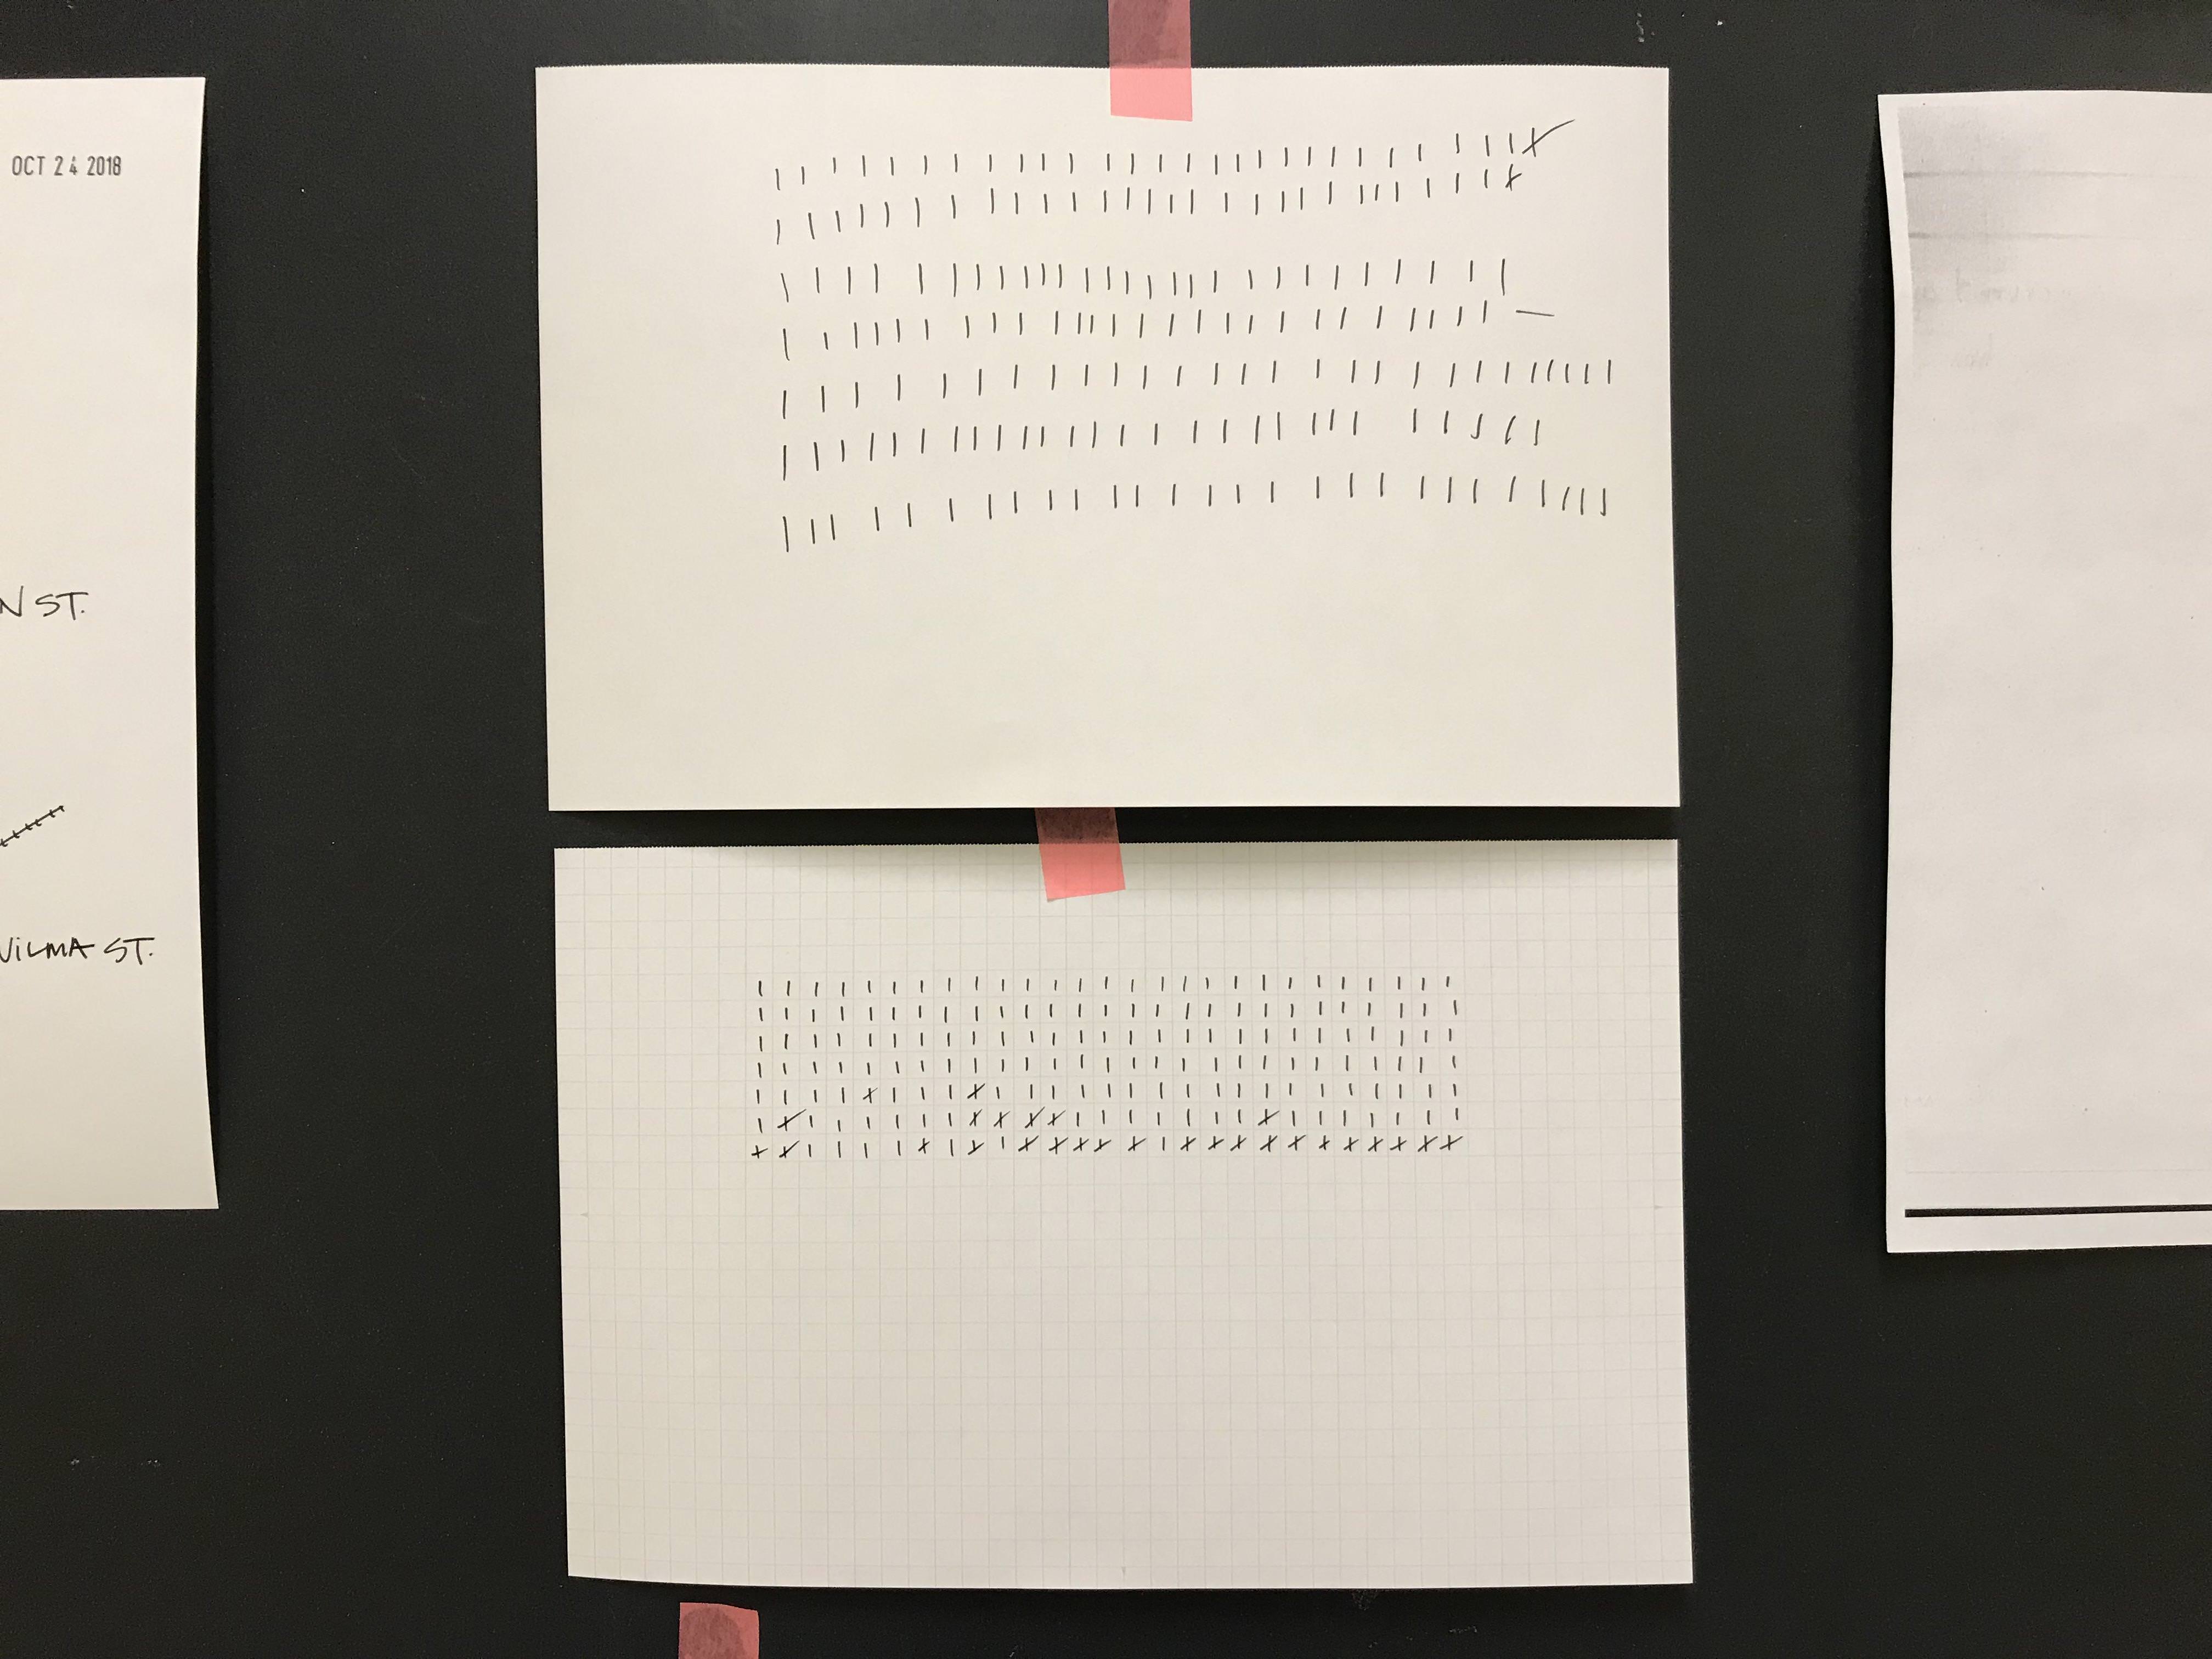 OCT 24 2018
N ST.
WILMA ST.